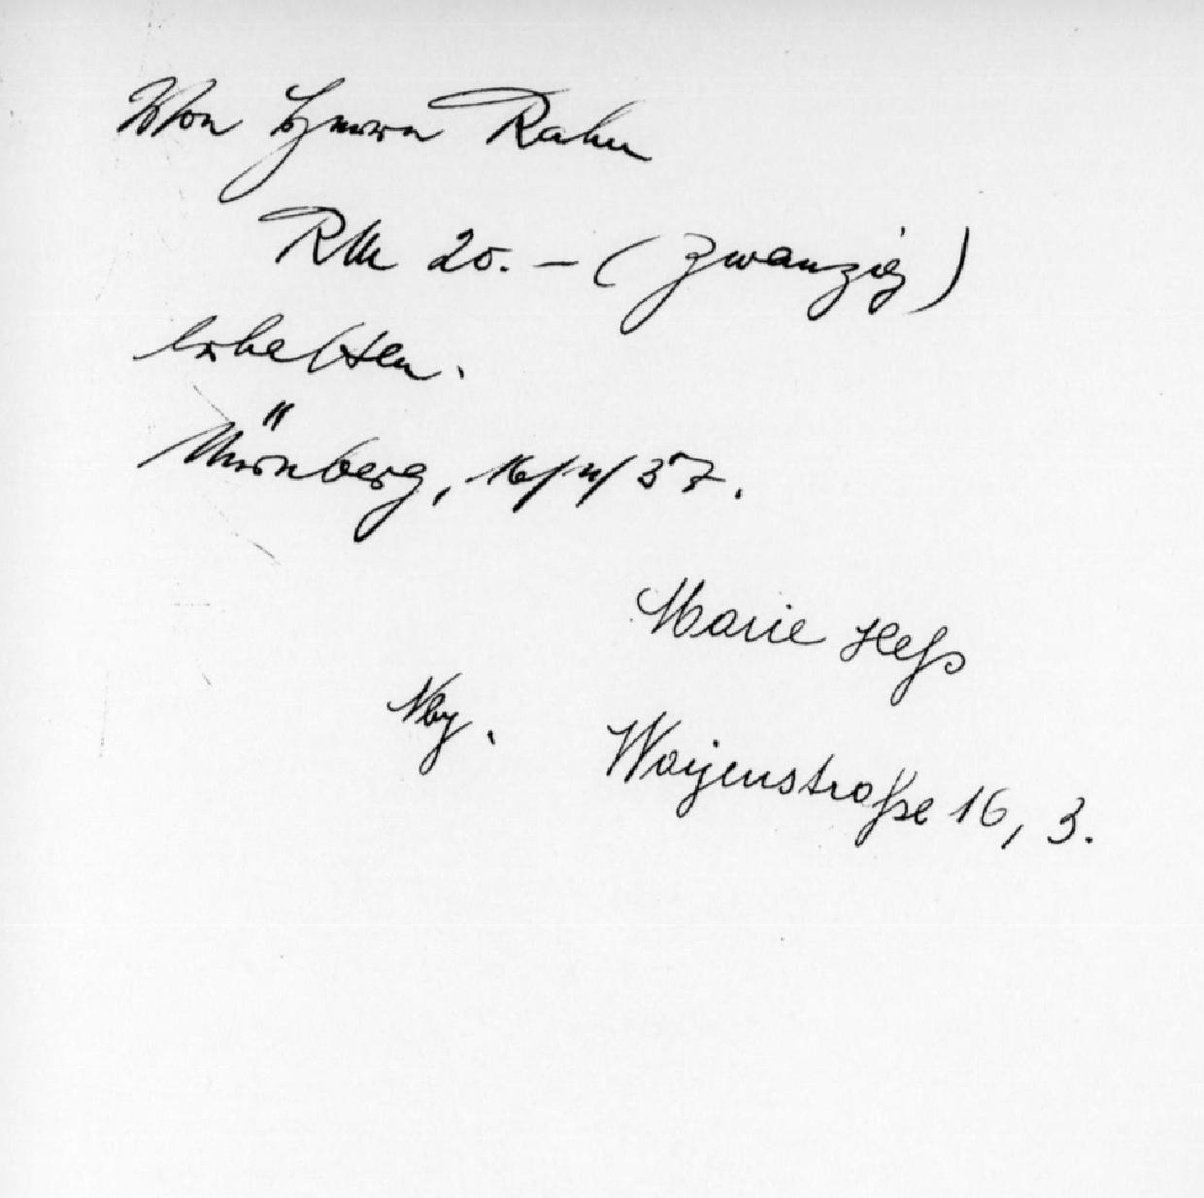 Von Herrn Rahn
RM 20.– (Zwanzig)
erhalten.
Nürnberg, 16/11/37.
Marie Heß
Nbg. Waizenstraße 16, 3.